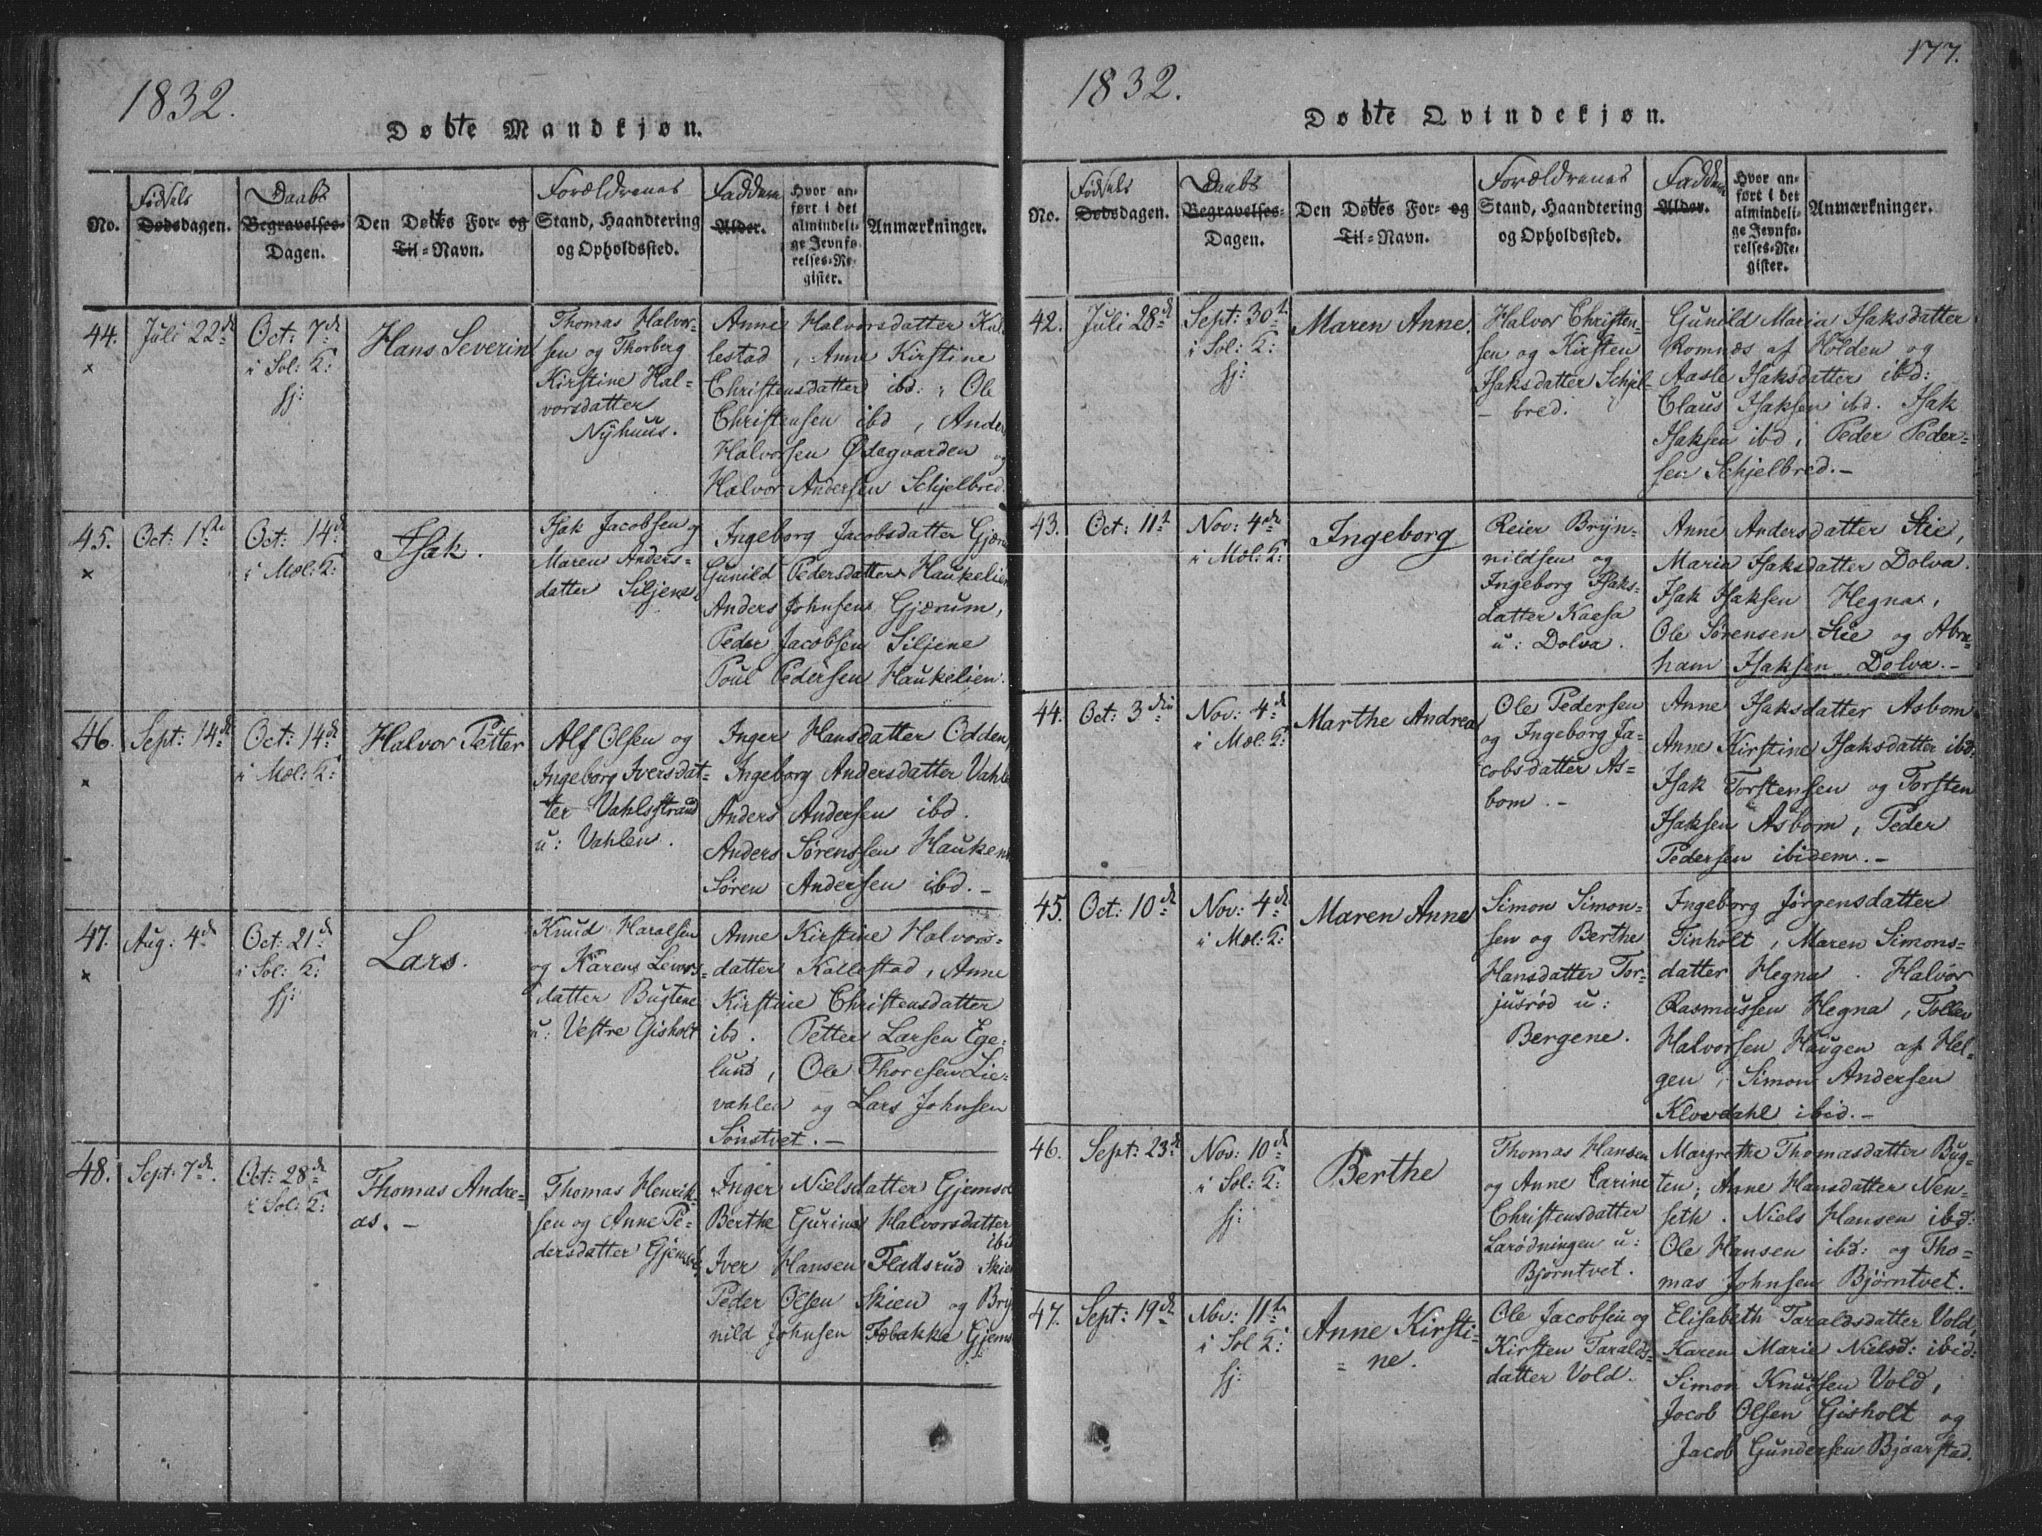 1832.
Døbte Mandkjøn.
No.
Fødsels
Dødsdagen.
Daabs
Begravelses-
Dagen.
Den Døbtes For- og
Til-Navn.
Forældrenes
Stand, Haandtering
og Opholdssted.
Faddere
Alder.
Hvor an-
ført i det
almindeli-
ge Jevnfø-
relses-Re-
gister.
Anmærkninger.
44.
×
Juli 22de
Oct: 7de
i Sol: K:
hj:
Hans Severin
Thomas Halvor-
sen og Thorberg
Kirstine Hal-
vorsdatter
Nyhuus.
Anne Halvorsdatter Kal-
lestad, Anne Kirstine
Christensdatter ibd: Ole
Christensen ibd, Anders
Halvorsen Ødegaarden og
Halvor Andersen Schjelbred.
45.
×
Oct: 1ste
Oct: 14de
i Mæl: K:
Isak.
Isak Jacobsen og
Maren Anders-
datter Siljene
Ingeborg Jacobsdatter Gjærum
Gunild Pedersdatter Haukelien
Anders Johnsens Gjærum,
Peder Jacobsen Siljene
Poul Pedersen Haukelien.
46.
×
Sept: 14de
Oct: 14de
i Mæl: K:
Halvor Petter
Alf Olsen og
Ingeborg Iversdat-
ter Vahlsstrand
u: Vahlen.
Inger Hansdatter Odden,
Ingeborg Andersdatter Vahlen
Anders Andersen ibd.
Anders Sørenssen Haukenes
Søren Andersen ibd. –
47.
×
Aug: 4de
Oct: 21de
i Sol: K:
hj:
Lars.
Knud Haralsen
og Karen Levors-
datter Bugtene
u: Vestre Gisholt
Anne Kirstine Halvors-
datter Kallestad, Anne
Kirstine Christensdatter
ibd. Petter Larsen Ege-
lund, Ole Thoresen Lie-
vahlen og Lars Johnsen
Sønstvet. –
48.
Sept: 7de
Oct: 28de
i Sol: K:
Thomas Andre-
as. –
Thomas Henrik-
sen og Anne Pe-
dersdatter Gjemsø,
Inger Nielsdatter Gjemsø
Berthe Gurine Halvorsdatter
ibid
Iver Hansen Fladsrud Skien
Peder Olsen Skien og Bryn-
nild Johnsen Fæbakke Gjemsø
177.
1832.
Døbte Qvindekjøn.
No.
Fødsels
Dødsdagen.
Daabs
Begravelses-
Dagen.
Den Døbtes For- og
Til-Navn.
Forældrenes
Stand, Haandtering
og Opholdssted.
Faddere
Alder.
Hvor an-
ført i det
almindeli-
ge Jevnfø-
relses-Re-
gister.
Anmærkninger.
42.
Juli 28de
Sept: 30te
i Sol: K:
hj:
Maren Anne.
Halvor Christen-
sen og Kirsten
Isaksdatter Schjel-
– bred.
Gunild Maria Isaksdatter
Romnæs af Holden og
Aasle Isaksdatter ibd:
Claus Isaksen ibd. Isak
Isaksen ibd, Peder Peder-
sen Schjelbred. –
43.
Oct: 11te
Nov: 4de
i Mæl: K:
Ingeborg
Reier Bryn-
nildsen og
Ingeborg Isaks-
datter Kaesa
u: Dolva.
Anne Andersdatter Stie,
Maria Isaksdatter Dolva.
Isak Isaksen Hegna,
Ole Sørensen Stie og Abra
ham Isaksen Dolva. –
44.
Oct: 3die
Nov: 4de
i Mæl: K:
Marthe Andrea
Ole Pedersen
og Ingeborg Ja-
cobsdatter As-
bom. –
Anne Isaksdatter Asbom
Anne Kirstine Isaksdatter ibd:
Isak Torstensen og Torsten
Isaksen Asbom, Peder
Pedersen ibidem. –
45.
Oct: 10de
Nov: 4de
i Mæl: K:
Maren Anne
Simon Simon-
sen og Berthe
Hansdatter Tor-
jusrød u:
Bergene.
Ingeborg Jørgensdatter
Tinholt, Maren Simons-
datter Hegna. Halvor
Rasmussen Hegna, Tollev
Halvorsen Haugen af Hel-
gen, Simon Andersen
Klovdahl ibid. –
46.
Sept: 23de
Nov: 10de
i Sol: K:
hj:
Berthe
Thomas Hansen
og Anne Carine
Christensdatter
Larødningen u:
Bjørntvet.
Margrethe Thomasdatter Bug-
ten, Anne Hansdatter Nen-
seth. Niels Hansen ibd:
Ole Hansen ibd: og Tho-
mas Johnsen Bjørntvet.
47.
Sept: 19de
Nov: 11te
i Sol K:
hj:
Anne Kirsti-
– ne.
Ole Jacobsen og
Kirsten Taralds-
datter Vold.
Elisabeth Taraldsdatter Vold,
Karen Marie Nielsd: ibid:
Simon Knutsen Vold,
Jacob Olsen Gisholt og
Jacob Gundersen Bjaarstad.